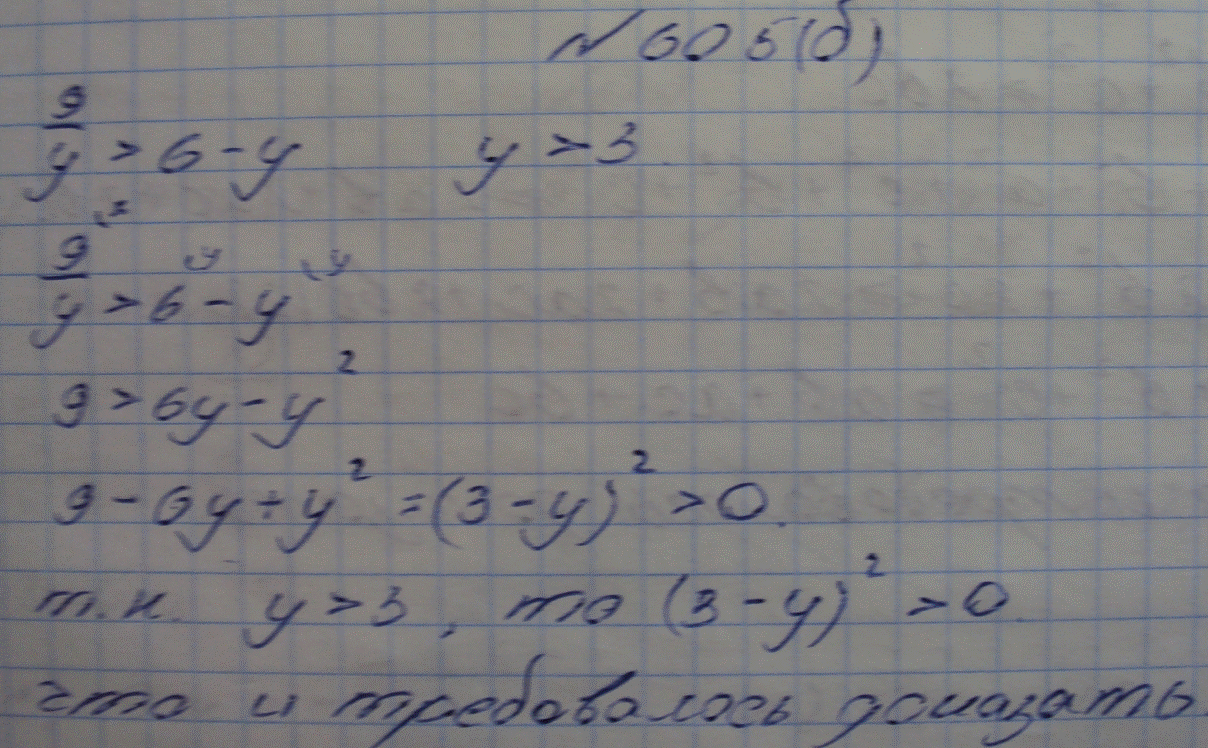 № 605(б)
9/y > 6 - y    y > 3
9/y > 6 ^y - y ^y
9 > 6y - y²
9 - 6y + y² = (3 - y)² > 0.
т.к. y > 3, то (3 - y)² > 0.
что и требовалось доказать.